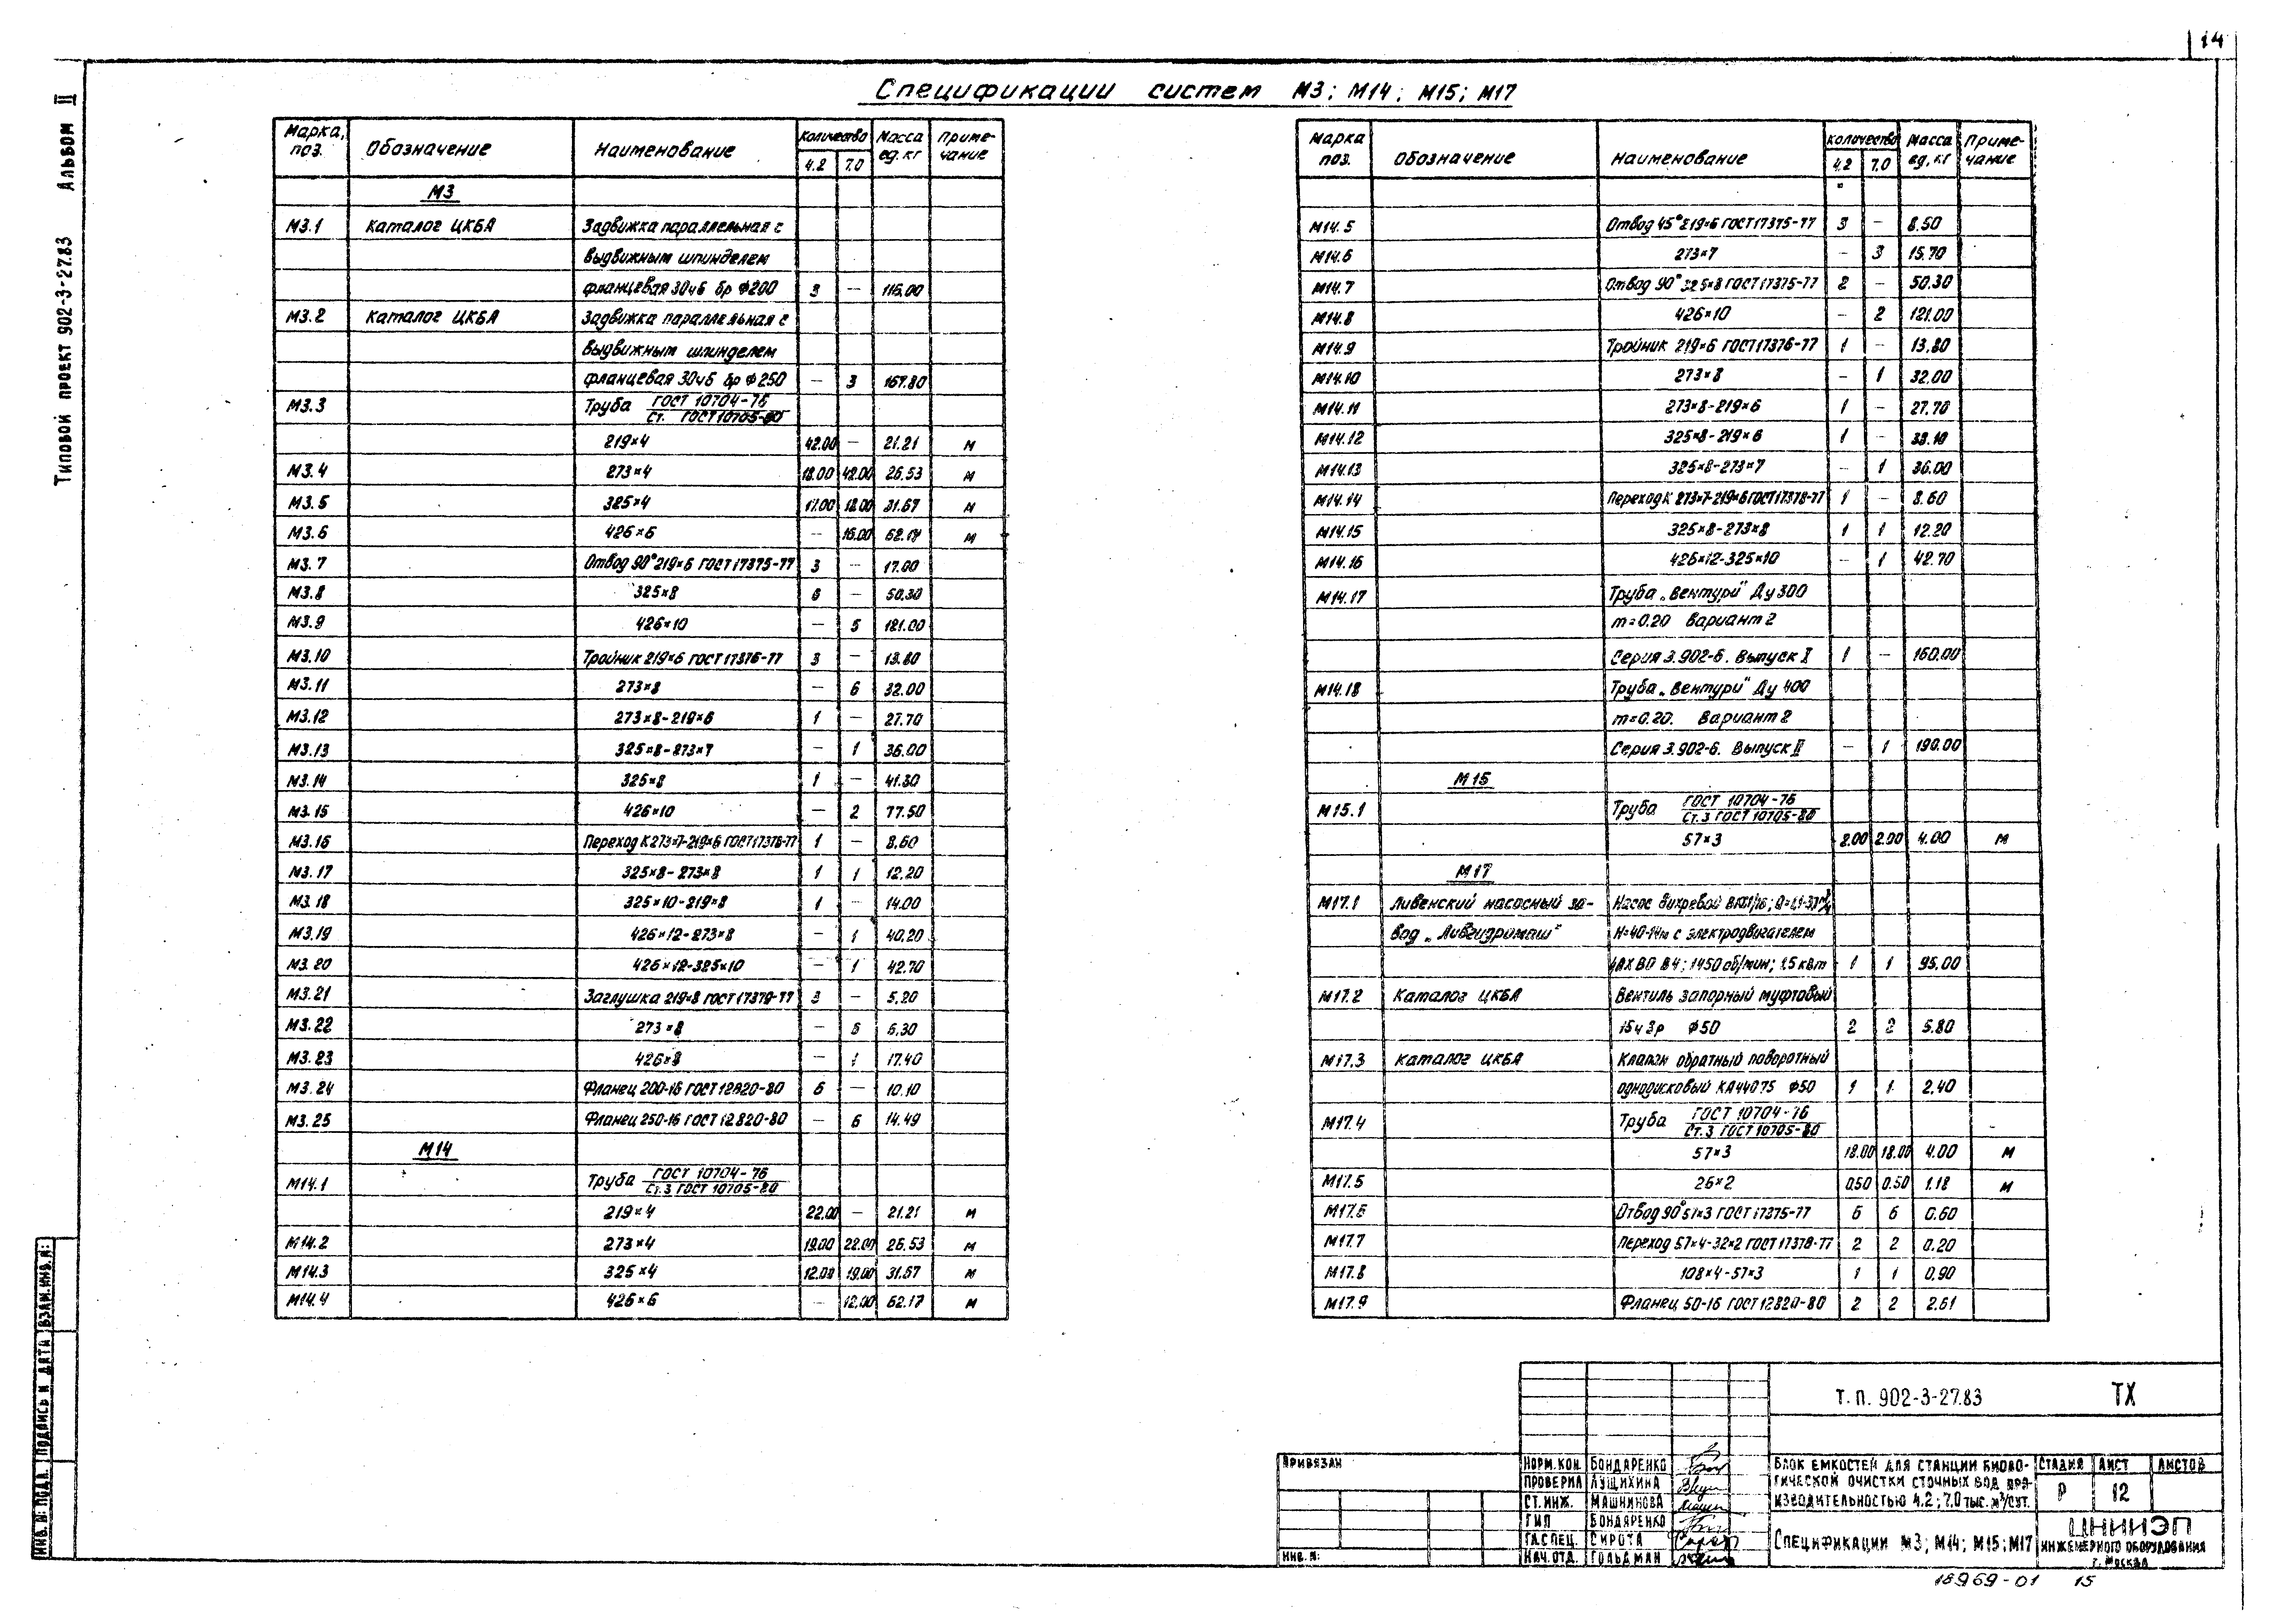 14
Типовой проект 902-3-27.83 Альбом II
Спецификации систем М3; М14; М15; М17
Марка, поз. Обозначение Наименование Количество Масса ед. кг Примечание
4.2 7.0
М3
М3.1 Каталог ЦКБА Задвижка параллельная с
выдвижным шпинделем
фланцевая 30ч6 бр Ф200 3 — 115.00
М3.2 Каталог ЦКБА Задвижка параллельная с
выдвижным шпинделем
фланцевая 30ч6 бр Ф250 — 3 167.80
М3.3 Труба ГОСТ 10704-76
Ст. ГОСТ 10705-80
219×4 42.00 — 21.21 м
М3.4 273×4 18.00 42.00 26.53 м
М3.5 325×4 17.00 18.00 31.67 м
М3.6 426×6 — 16.00 62.17 м
М3.7 Отвод 90° 219×6 ГОСТ 17375-77 3 — 17.00
М3.8 325×8 6 — 50.30
М3.9 426×10 — 5 121.00
М3.10 Тройник 219×6 ГОСТ 17376-77 3 — 13.80
М3.11 273×8 — 6 32.00
М3.12 273×8-219×6 1 — 27.70
М3.13 325×8-273×7 — 1 36.00
М3.14 325×8 1 — 41.30
М3.15 426×10 — 2 77.50
М3.16 Переход К 273×7-219×6 ГОСТ 17378-77 1 — 8.60
М3.17 325×8-273×8 1 1 12.20
М3.18 325×10-219×8 1 — 14.00
М3.19 426×12-273×8 — 1 40.20
М3.20 426×12-325×10 — 1 42.70
М3.21 Заглушка 219×8 ГОСТ 17379-77 3 — 5.20
М3.22 273×8 — 5 6.30
М3.23 426×8 — 1 17.40
М3.24 Фланец 200-16 ГОСТ 12820-80 6 — 10.10
М3.25 Фланец 250-16 ГОСТ 12820-80 — 6 14.49
М14
М14.1 Труба ГОСТ 10704-76
Ст.3 ГОСТ 10705-80
219×4 22.00 — 21.21 м
М14.2 273×4 19.00 22.00 26.53 м
М14.3 325×4 12.00 19.00 31.67 м
М14.4 426×6 — 12.00 62.17 м
Марка поз. Обозначение Наименование Количество Масса ед. кг Примечание
4.2 7.0
М14.5 Отвод 45° 219×6 ГОСТ 17375-77 3 — 8.50
М14.6 273×7 — 3 15.70
М14.7 Отвод 90° 325×8 ГОСТ 17375-77 2 — 50.30
М14.8 426×10 — 2 121.00
М14.9 Тройник 219×6 ГОСТ 17376-77 1 — 13.80
М14.10 273×8 — 1 32.00
М14.11 273×8-219×6 1 — 27.70
М14.12 325×8-219×6 1 — 38.10
М14.13 325×8-273×7 — 1 36.00
М14.14 Переход К 273×7-219×6 ГОСТ 17378-77 1 — 8.60
М14.15 325×8-273×8 1 1 12.20
М14.16 426×12-325×10 — 1 42.70
М14.17 Труба „Вентури" Ду 300
m=0.20 Вариант 2
Серия 3.902-6. Выпуск I 1 — 160.00
М14.18 Труба „Вентури" Ду 400
m=0.20. Вариант 2
Серия 3.902-6. Выпуск II — 1 190.00
М15
М15.1 Труба ГОСТ 10704-76
Ст.3 ГОСТ 10705-80
57×3 2.00 2.00 4.00 м
М17
М17.1 Ливенский насосный за- Насос вихревой
вод „Ливгидромаш" Н=40-14м с электродвигателем
1450 об/мин; 1.5 квт 1 1 95.00
М17.2 Каталог ЦКБА Вентиль запорный муфтовый
15ч3р Ф50 2 2 5.80
М17.3 Каталог ЦКБА Клапан обратный поворотный
однодисковый КА44075 Ф50 1 1 2.40
М17.4 Труба ГОСТ 10704-76
Ст.3 ГОСТ 10705-80
57×3 18.00 18.00 4.00 м
М17.5 26×2 0.50 0.50 1.18 м
М17.6 Отвод 90° 57×3 ГОСТ 17375-77 6 6 0.60
М17.7 Переход 57×4-32×2 ГОСТ 17378-77 2 2 0.20
М17.8 108×4-57×3 1 1 0.90
М17.9 Фланец 50-16 ГОСТ 12820-80 2 2 2.61
Т.П. 902-3-27.83 ТХ
Привязан
Инв. №:
Норм.кон. Бондаренко
Проверил Лущихина
Ст.инж. Машнинова
ГИП Бондаренко
Гл.спец. Сирота
Нач.отд. Гольдман
Блок емкостей для станции биоло-
гической очистки сточных вод про-
изводительностью 4.2; 7.0 тыс. м³/сут.
Стадия Лист Листов
Р 12
Спецификации М3; М14; М15; М17
ЦНИИЭП
инженерного оборудования
г. Москва
Инв. № подл. Подпись и дата Взам.инв.№:
18969-01 15